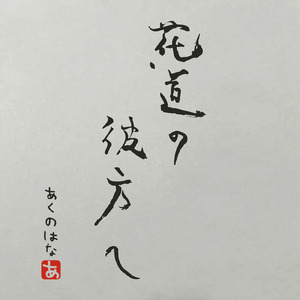 花道の
彼方へ
あくのはな
あ